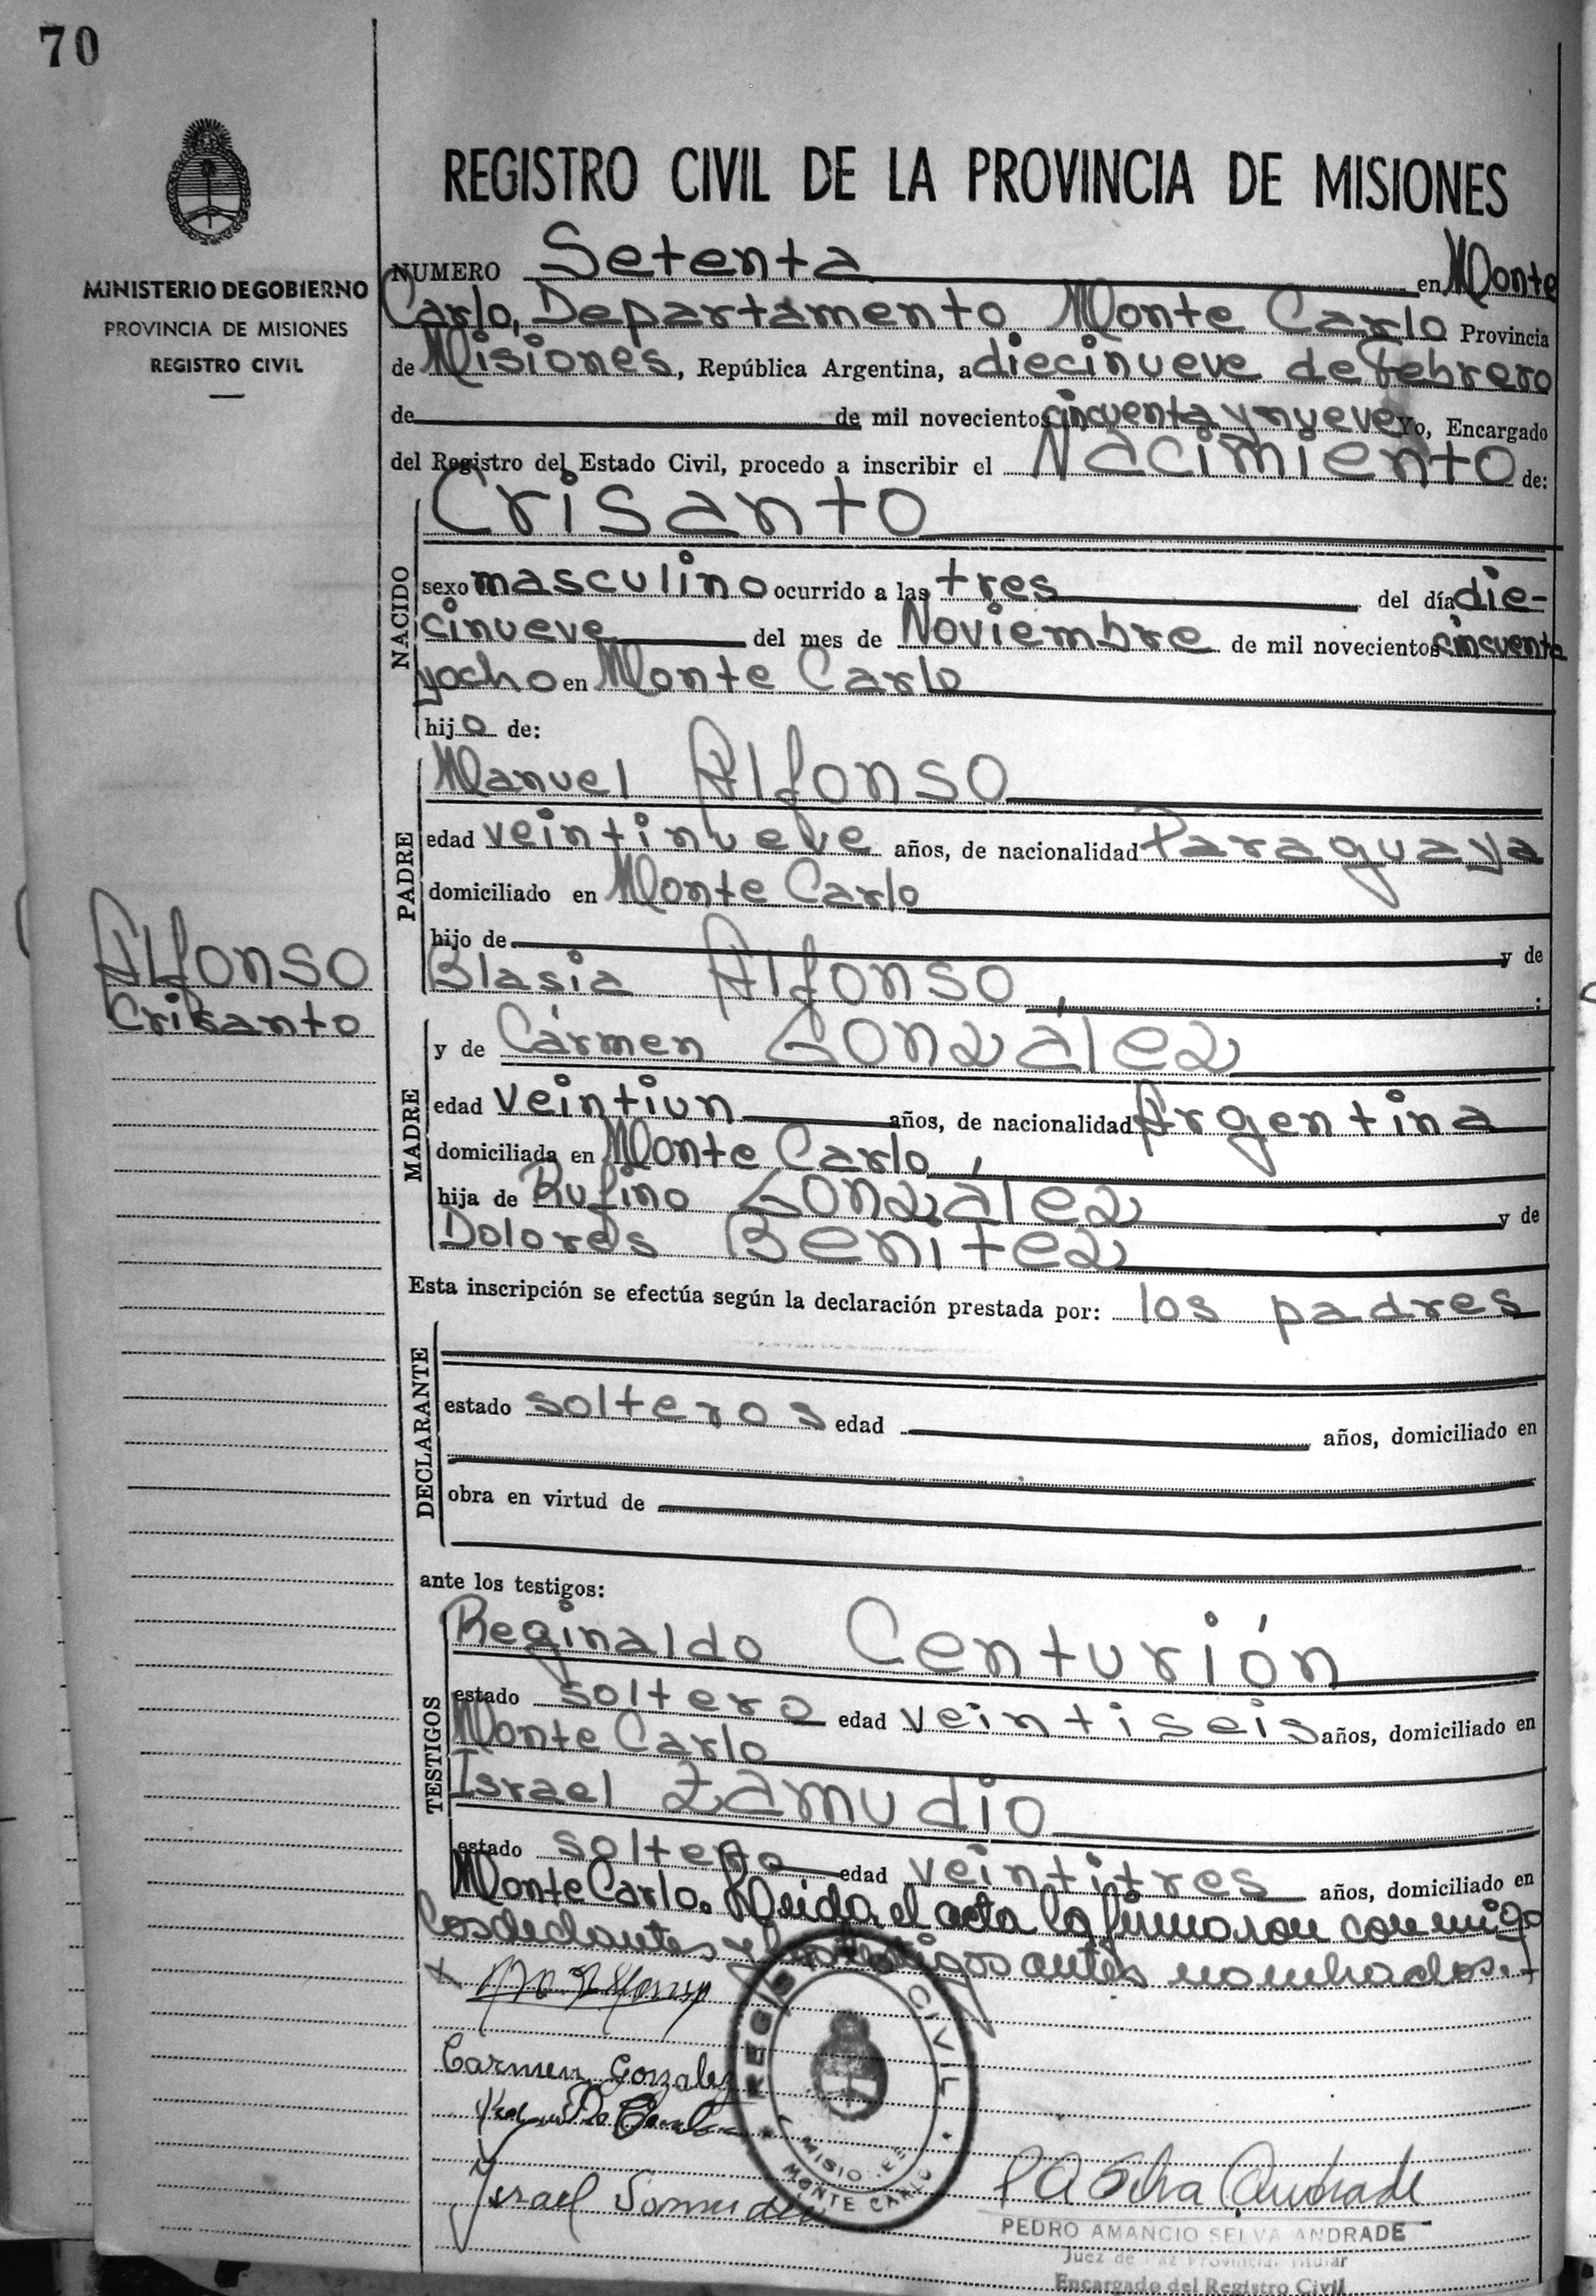 70
MINISTERIO DE GOBIERNO
PROVINCIA DE MISIONES
REGISTRO CIVIL
REGISTRO CIVIL DE LA PROVINCIA DE MISIONES
NUMERO Setenta en Monte
Carlo, Departamento Monte Carlo Provincia
de Misiones, República Argentina, a diecinueve de Febrero
de de mil novecientos cincuenta y nueve Yo, Encargado
del Registro del Estado Civil, procedo a inscribir el Nacimiento de:
NACIDO
Crisanto
sexo masculino ocurrido a las tres del día die-
cinueve del mes de Noviembre de mil novecientos cincuenta
y ocho en Monte Carlo
hijo de:
PADRE
Manuel Alfonso
edad veintinueve años, de nacionalidad Paraguaya
domiciliado en Monte Carlo
hijo de y de
Blasia Alfonso,
Alfonso
Crisanto
MADRE
y de Cármen González
edad veintiun años, de nacionalidad Argentina
domiciliada en Monte Carlo,
hija de Rufino González y de
Dolores Benítez
Esta inscripción se efectúa según la declaración prestada por: los padres
DECLARANTE
estado solteros edad años, domiciliado en
obra en virtud de
ante los testigos:
TESTIGOS
Reginaldo Centurión
estado soltero edad veintiseis años, domiciliado en
Monte Carlo
Israel Zamudio
estado soltero edad veintitres años, domiciliado en
Monte Carlo. Leida el acta la firmaron conmigo
los declantes y los testigos antes nombrados.
Carmen Gonzalez
Israel Samudio
REGIS CIVIL
MISIONES
MONTE CARLO
P A Selva Andrade
PEDRO AMANCIO SELVA ANDRADE
Juez de Paz Provincial Titular
Encargado del Registro Civil